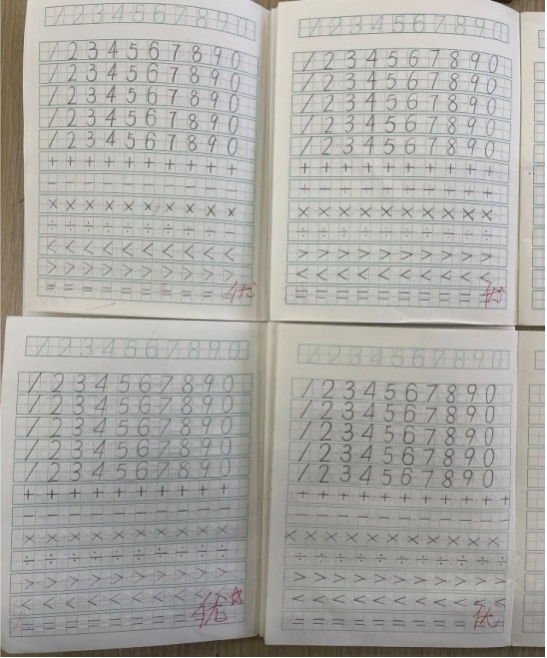 1 2 3 4 5 6 7 8 9 0
1 2 3 4 5 6 7 8 9 0
1 2 3 4 5 6 7 8 9 0
1 2 3 4 5 6 7 8 9 0
1 2 3 4 5 6 7 8 9 0
1 2 3 4 5 6 7 8 9 0
+ + + + + + + + + +
− − − − − − − − − −
× × × × × × × × × ×
÷ ÷ ÷ ÷ ÷ ÷ ÷ ÷ ÷ ÷
< < < < < < < < < <
> > > > > > > > > >
= = = = = = = = =
优
1 2 3 4 5 6 7 8 9 0
1 2 3 4 5 6 7 8 9 0
1 2 3 4 5 6 7 8 9 0
1 2 3 4 5 6 7 8 9 0
1 2 3 4 5 6 7 8 9 0
1 2 3 4 5 6 7 8 9 0
+ + + + + + + + + +
× × × × × × × × × ×
÷ ÷ ÷ ÷ ÷ ÷ ÷ ÷ ÷ ÷
> > > > > > > > > >
< < < < < < < < < <
= = = = = = = = =
优
1 2 3 4 5 6 7 8 9 0
1 2 3 4 5 6 7 8 9 0
1 2 3 4 5 6 7 8 9 0
1 2 3 4 5 6 7 8 9 0
1 2 3 4 5 6 7 8 9 0
1 2 3 4 5 6 7 8 9 0
+ + + + + + + + + +
− − − − − − − − − −
× × × × × × × × × ×
÷ ÷ ÷ ÷ ÷ ÷ ÷ ÷ ÷ ÷
> > > > > > > > > >
< < < < < < < < <
= = = = = = = =
优☆
1 2 3 4 5 6 7 8 9 0
1 2 3 4 5 6 7 8 9 0
1 2 3 4 5 6 7 8 9 0
1 2 3 4 5 6 7 8 9 0
1 2 3 4 5 6 7 8 9 0
1 2 3 4 5 6 7 8 9 0
+ + + + + + + + + + +
− − − − − − − − − −
× × × × × × × × × × ×
÷ ÷ ÷ ÷ ÷ ÷ ÷ ÷ ÷ ÷ ÷
> > > > > > > > > > >
< < < < < < < < < < <
= = = = = = = = =
优